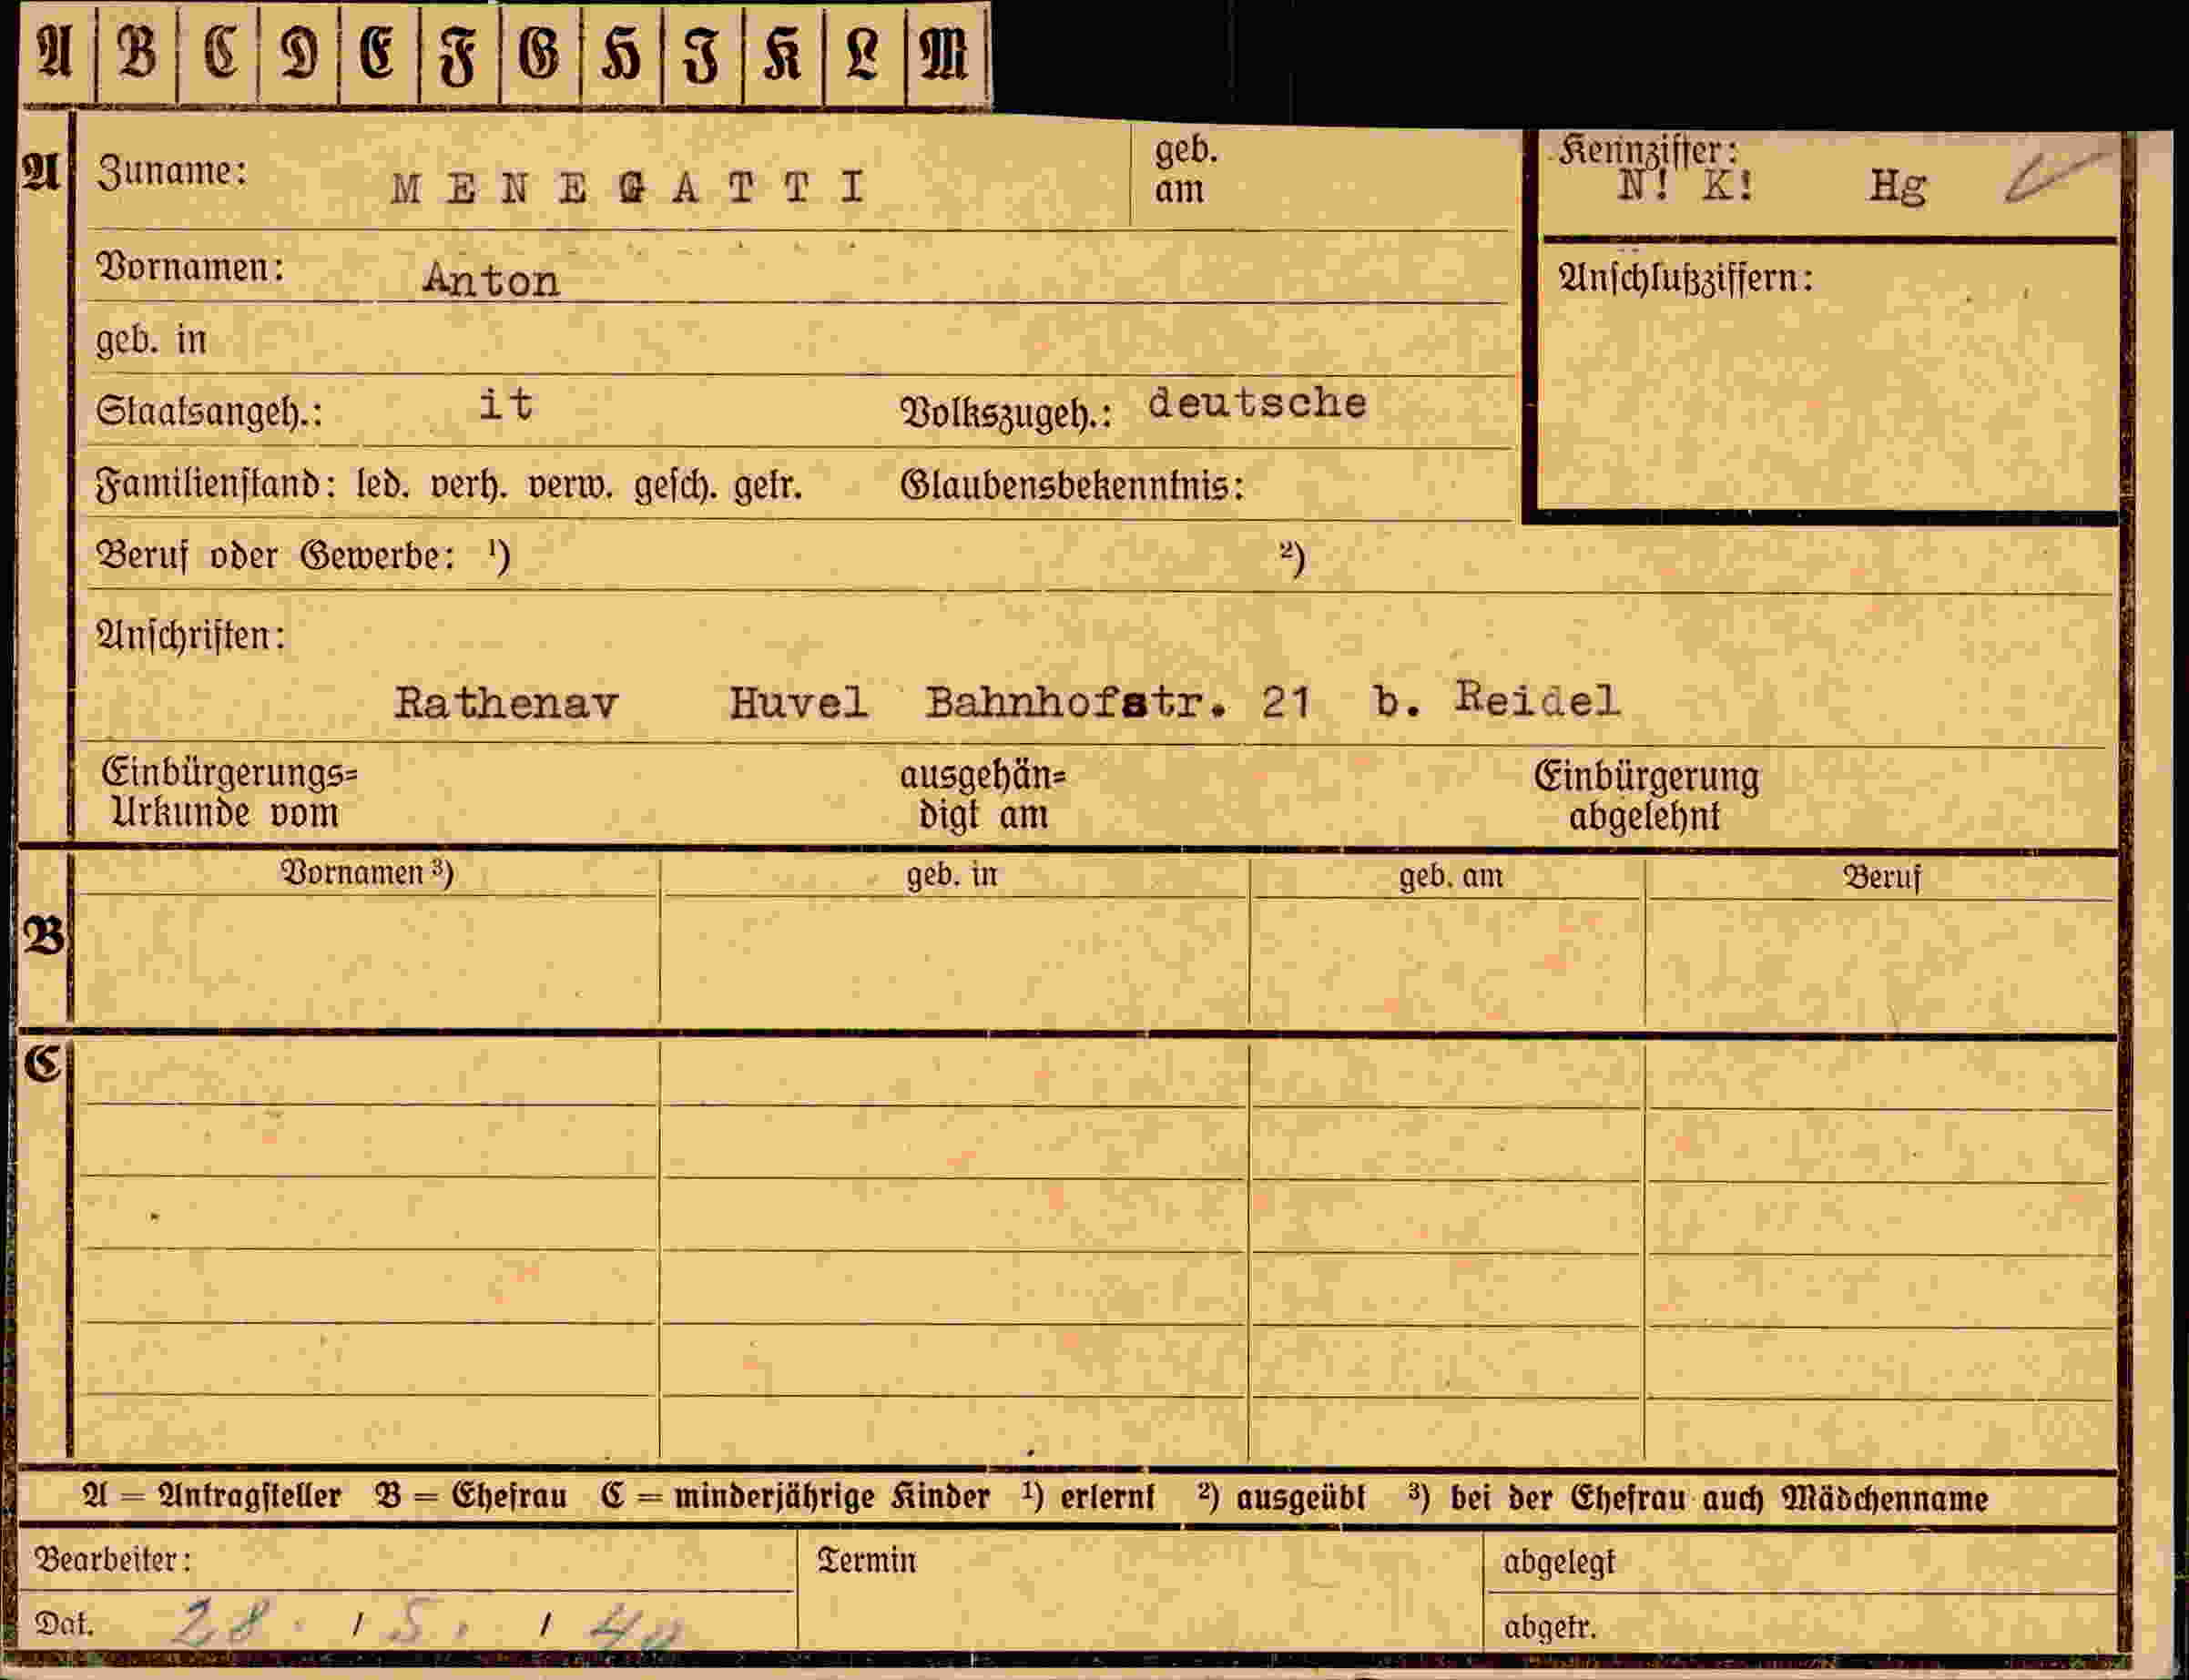 A B C D E F G H I K L M
A Zuname: MENEGATTI geb. am
Kennziffer: N! K! Hg
Vornamen: Anton
Anschlußziffern:
geb. in
Staatsangeh.: it Volkszugeh.: deutsche
Familienstand: led. verh. verw. gesch. getr. Glaubensbekenntnis:
Beruf oder Gewerbe: ¹) ²)
Anschriften:
Rathenav Huvel Bahnhofstr. 21 b. Reidel
Einbürgerungs= ausgehän= Einbürgerung
Urkunde vom digt am abgelehnt
Vornamen ³) geb. in geb. am Beruf
B
C
A = Antragsteller B = Ehefrau C = minderjährige Kinder ¹) erlernt ²) ausgeübt ³) bei der Ehefrau auch Mädchenname
Bearbeiter: Termin abgelegt
Dat. 28. / 5. / 40 abgetr.